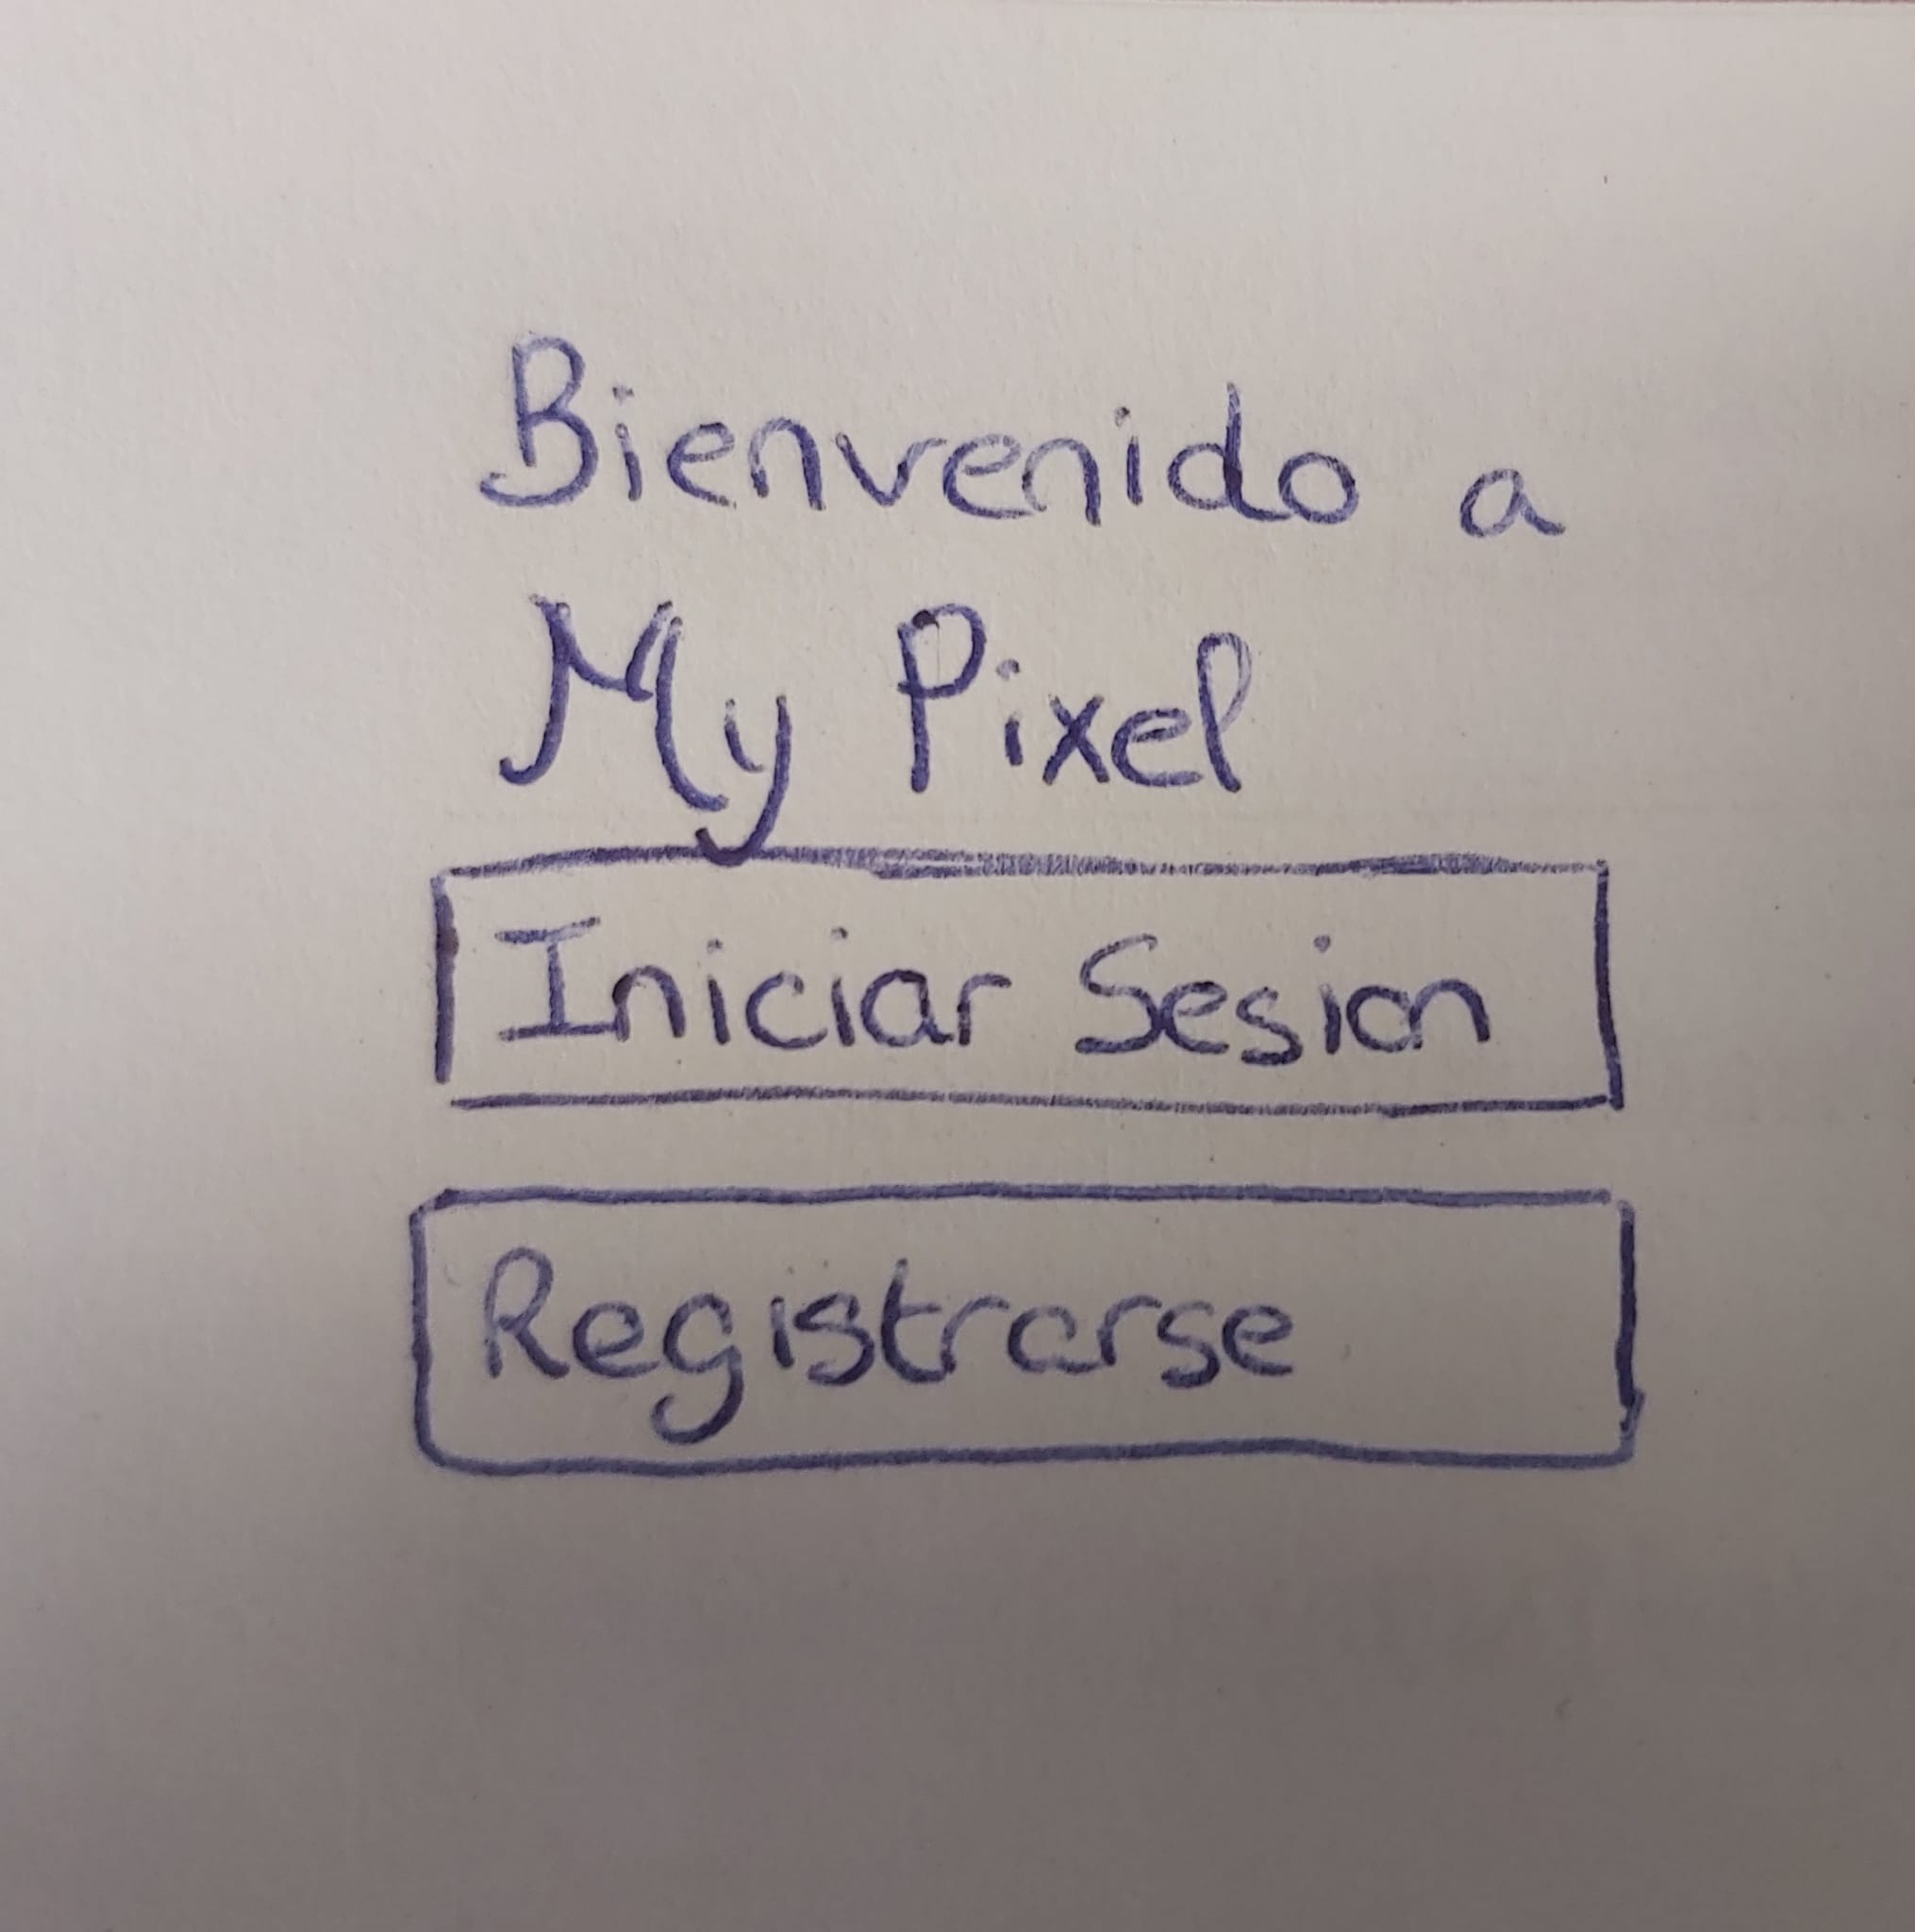 Bienvenido a
My Pixel
Iniciar Sesion
Registrarse